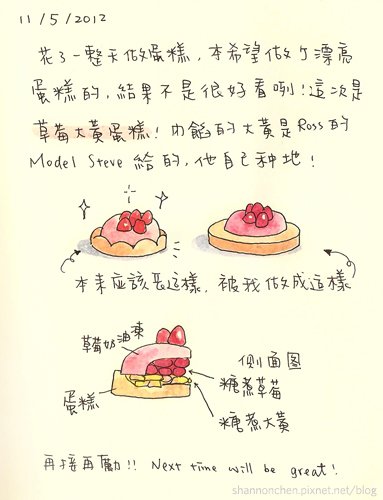 11/5/2012
花了一整天做蛋糕,本希望做ㄅ漂高
蛋糕的,結果不是很好看咧!這次是
草莓大黃蛋糕!內餡的大黃是Ross的
Model Steve 給的,他自己種地!
本來应該長這樣,被我做成這樣
草莓奶油凍
側面图
糖煮草莓
蛋糕
糖煮大黃
再接再勵!! Next time will be great!
shannonchen.pixnet.net/blog